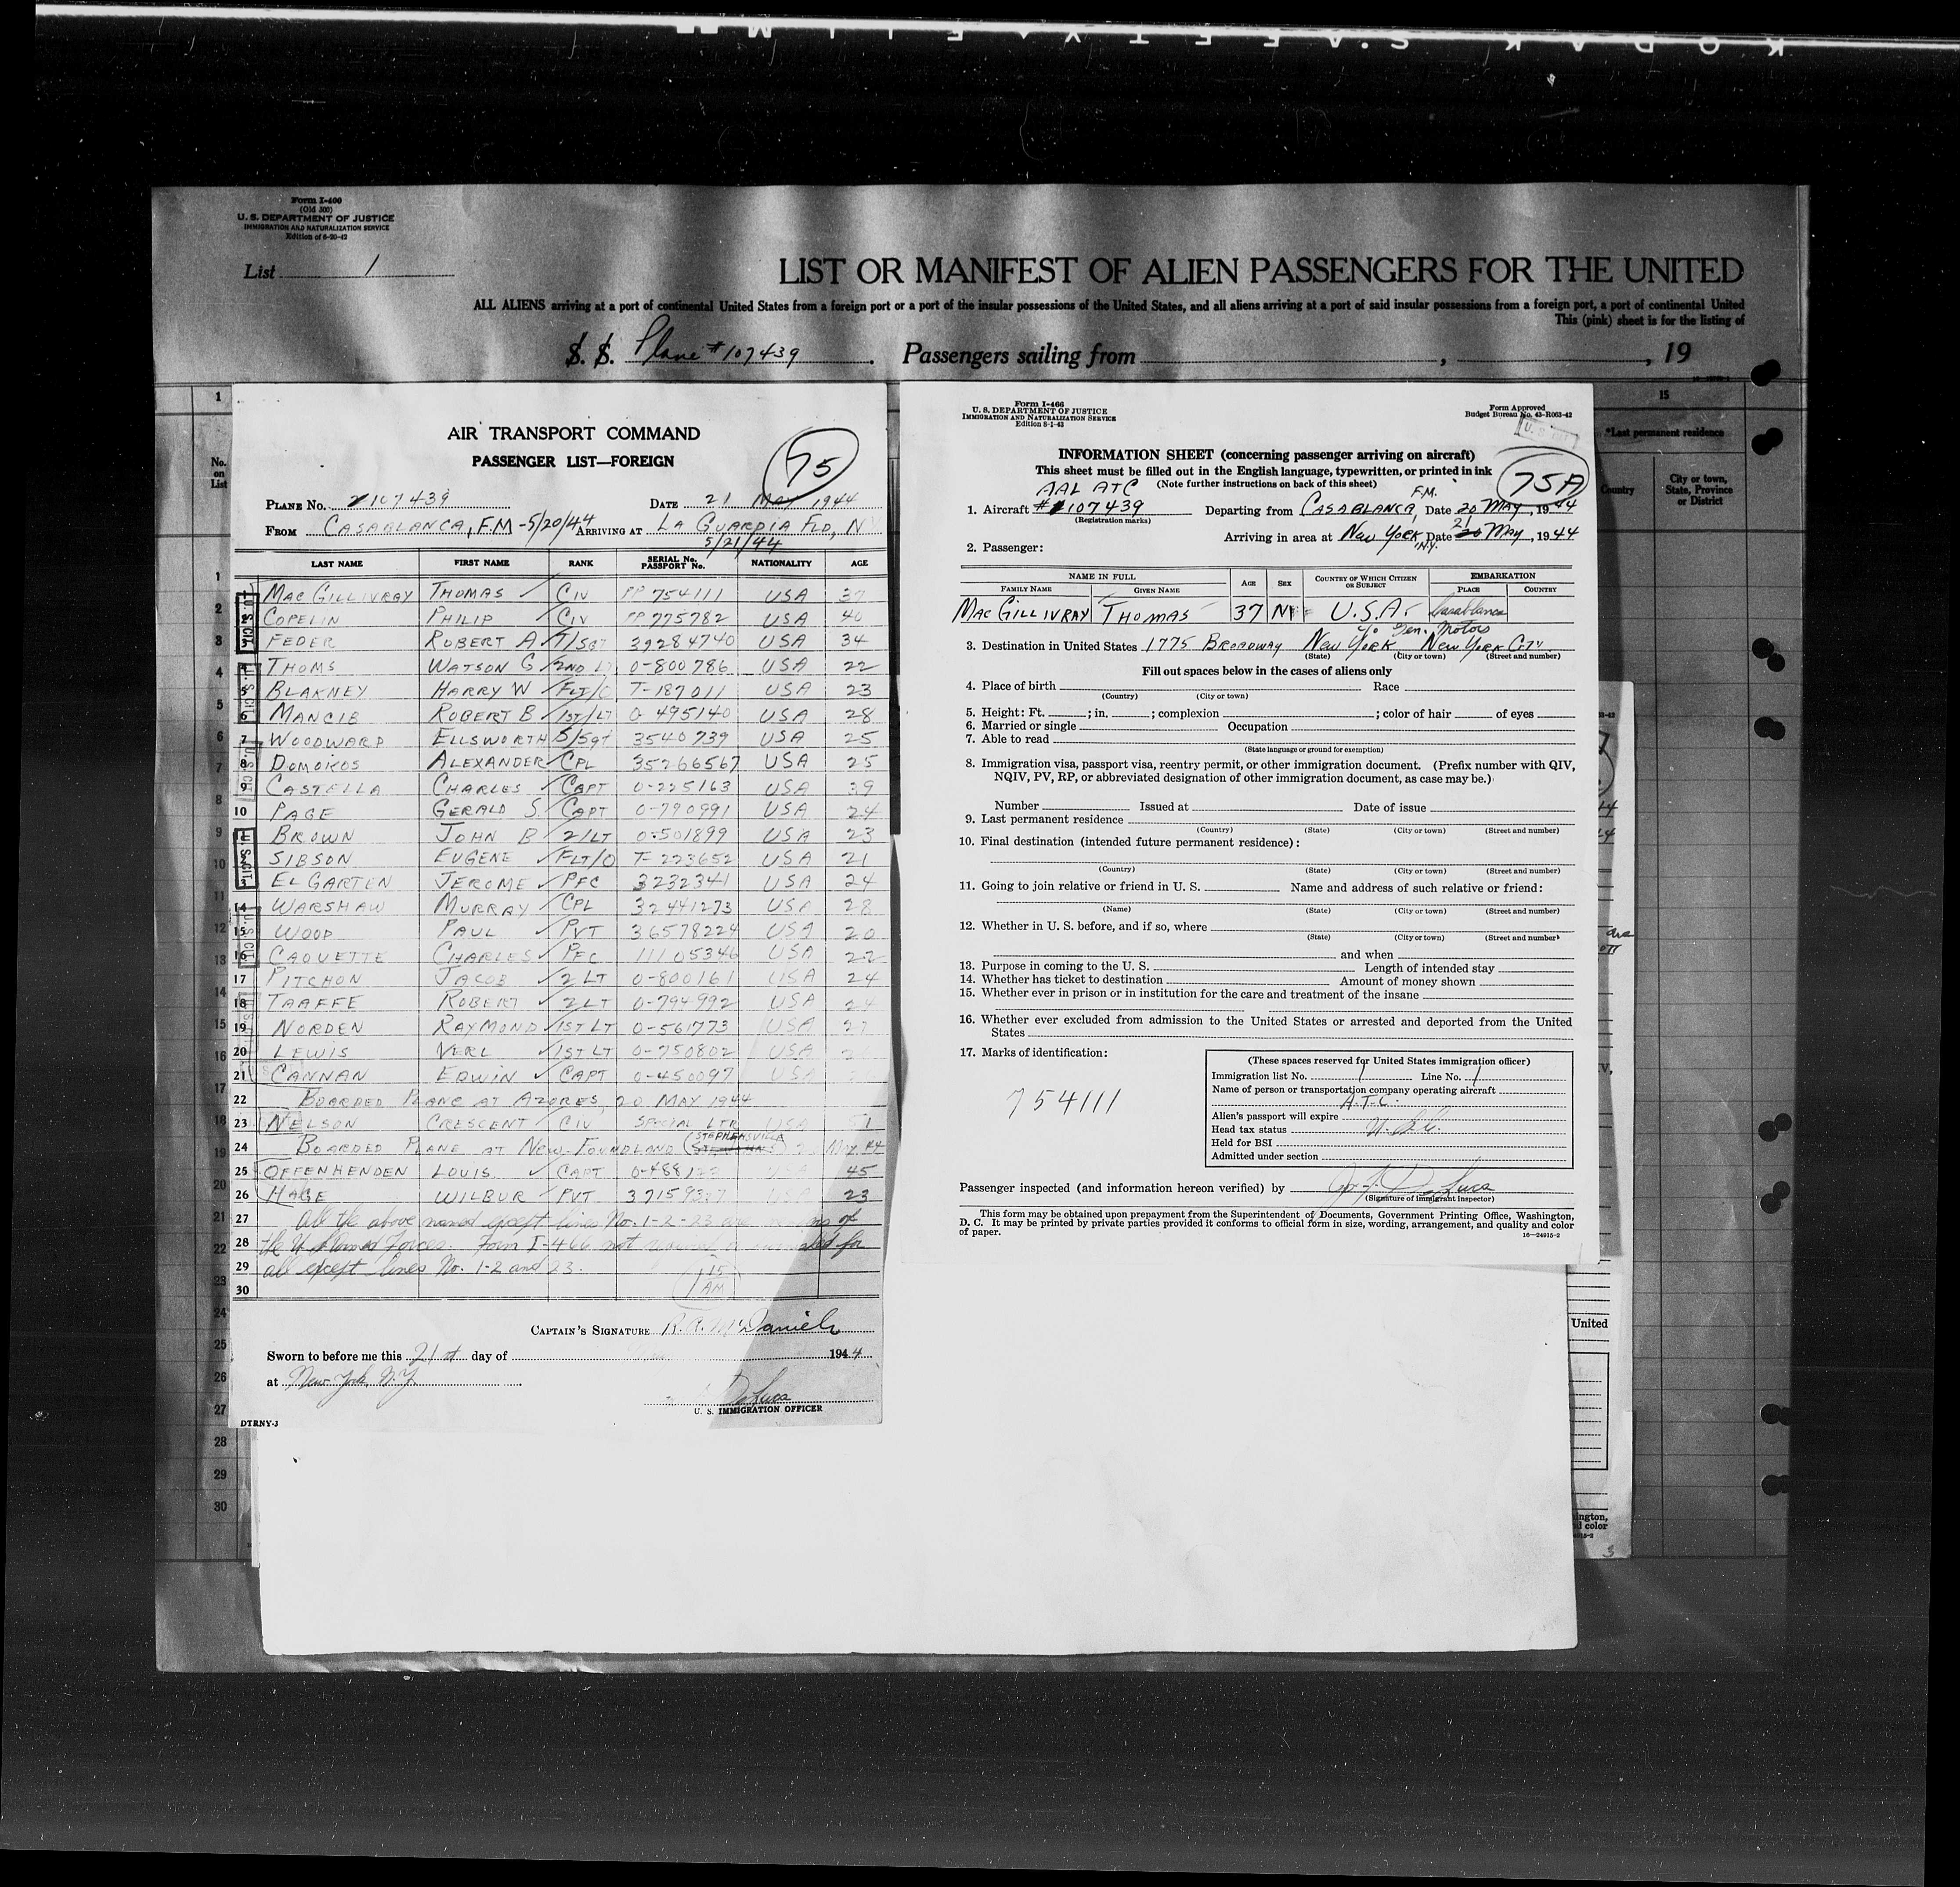 KODAK S·AFETY FILM
Form I-400
(Old 500)
U. S. DEPARTMENT OF JUSTICE
IMMIGRATION AND NATURALIZATION SERVICE
Edition of 6-20-42
List 1
LIST OR MANIFEST OF ALIEN PASSENGERS FOR THE UNITED
ALL ALIENS arriving at a port of continental United States from a foreign port or a port of the insular possessions of the United States, and all aliens arriving at a port of said insular possessions from a foreign port, a port of continental United
This (pink) sheet is for the listing of
S. S. Plane #107439. Passengers sailing from , , 19
AIR TRANSPORT COMMAND
PASSENGER LIST—FOREIGN
75
PLANE No. 107439 DATE 21 MAY 1944
FROM CASABLANCA, F.M - 5/20/44 ARRIVING AT LA GUARDIA FLD, N
5/21/44
LAST NAME FIRST NAME RANK SERIAL No. PASSPORT No. NATIONALITY AGE
MAC GILLIVRAY THOMAS CIV PP 754111 USA 37
COPELIN PHILIP CIV PP 775782 USA 40
FEDER ROBERT A T/SGT 39284740 USA 34
THOMS WATSON G 2ND LT 0-800786 USA 22
BLAKNEY HARRY W FLT/O T-187011 USA 23
MANCIB ROBERT B 1ST/LT 0-495140 USA 28
7 WOODWARD ELLSWORTH S/Sgt 3540739 USA 25
8 DOMOKOS ALEXANDER CPL 35266567 USA 25
9 CASTELLA CHARLES CAPT 0-225163 USA 39
10 PAGE GERALD S. CAPT 0-790991 USA 24
BROWN JOHN B 2/LT 0-501899 USA 23
SIBSON EUGENE FLT/O T-223652 USA 21
ELGARTEN JEROME PFC 3232341 USA 24
14 WARSHAW MURRAY CPL 32441273 USA 28
15 WOOD PAUL PVT 36578224 USA 20
16 CAOUETTE CHARLES PFC 11105346 USA 22
17 PITCHON JACOB 2 LT 0-800161 USA 24
18 TAAFFE ROBERT 2 LT 0-794992 USA 24
19 NORDEN RAYMOND 1ST LT 0-561773 USA 27
20 LEWIS VERL 1ST LT 0-750802 USA
21 CANNAN EDWIN CAPT 0-450097 USA
22 BOARDED PLANE AT AZORES, 20 MAY 1944
23 NELSON CRESCENT CIV SPECIAL LTR USA 51
24 BOARDED PLANE AT NEW FOUNDLAND (STEPHENSVILLE) MAY 44
25 OFFENHENDEN LOUIS CAPT 0-488 45
26 HAGE WILBUR PVT 37159 23
27 All the above named except lines No. 1-2-23 are of
28 the U.S. Armed Forces. Form I-466 not for
29 all except lines No. 1-2 and 23.
30 15 AM
CAPTAIN'S SIGNATURE R. A. McDaniels
Sworn to before me this 21st day of 1944
at New York, N.Y.
De Luca
U. S. IMMIGRATION OFFICER
DTRNY-3
Form I-466
U. S. DEPARTMENT OF JUSTICE
IMMIGRATION AND NATURALIZATION SERVICE
Edition 8-1-43
Form Approved
Budget Bureau No. 43-R063-42
INFORMATION SHEET (concerning passenger arriving on aircraft)
This sheet must be filled out in the English language, typewritten, or printed in ink
(Note further instructions on back of this sheet)
75A
AAL ATC
1. Aircraft #107439 Departing from CASABLANCA, F.M. Date 20 MAY, 1944
(Registration marks)
Arriving in area at NEW YORK, N.Y. Date 21 MAY, 1944
2. Passenger:
NAME IN FULL AGE SEX COUNTRY OF WHICH CITIZEN OR SUBJECT EMBARKATION
FAMILY NAME GIVEN NAME PLACE COUNTRY
MAC GILLIVRAY THOMAS 37 M U.S.A. Casablanca
c/o Gen. Motors
3. Destination in United States 1775 BROADWAY NEW YORK NEW YORK CITY
(State) (City or town) (Street and number)
Fill out spaces below in the cases of aliens only
4. Place of birth Race
(Country) (City or town)
5. Height: Ft. ; in. ; complexion ; color of hair of eyes
6. Married or single Occupation
7. Able to read
(State language or ground for exemption)
8. Immigration visa, passport visa, reentry permit, or other immigration document. (Prefix number with QIV,
NQIV, PV, RP, or abbreviated designation of other immigration document, as case may be.)
Number Issued at Date of issue
9. Last permanent residence
(Country) (State) (City or town) (Street and number)
10. Final destination (intended future permanent residence):
(Country) (State) (City or town) (Street and number)
11. Going to join relative or friend in U. S. Name and address of such relative or friend:
(Name) (State) (City or town) (Street and number)
12. Whether in U. S. before, and if so, where
(State) (City or town) (Street and number)
and when
13. Purpose in coming to the U. S. Length of intended stay
14. Whether has ticket to destination Amount of money shown
15. Whether ever in prison or in institution for the care and treatment of the insane
16. Whether ever excluded from admission to the United States or arrested and deported from the United
States
17. Marks of identification:
754111
(These spaces reserved for United States immigration officer)
Immigration list No. 1 Line No. 1
Name of person or transportation company operating aircraft
A.T.C.
Alien's passport will expire
Head tax status
Held for BSI
Admitted under section
Passenger inspected (and information hereon verified) by De Luca
(Signature of Immigrant Inspector)
This form may be obtained upon prepayment from the Superintendent of Documents, Government Printing Office, Washington,
D. C. It may be printed by private parties provided it conforms to official form in size, wording, arrangement, and quality and color
of paper.
16—24915-2
15
*Last permanent residence
Country City or town, State, Province or District
No. on List
United